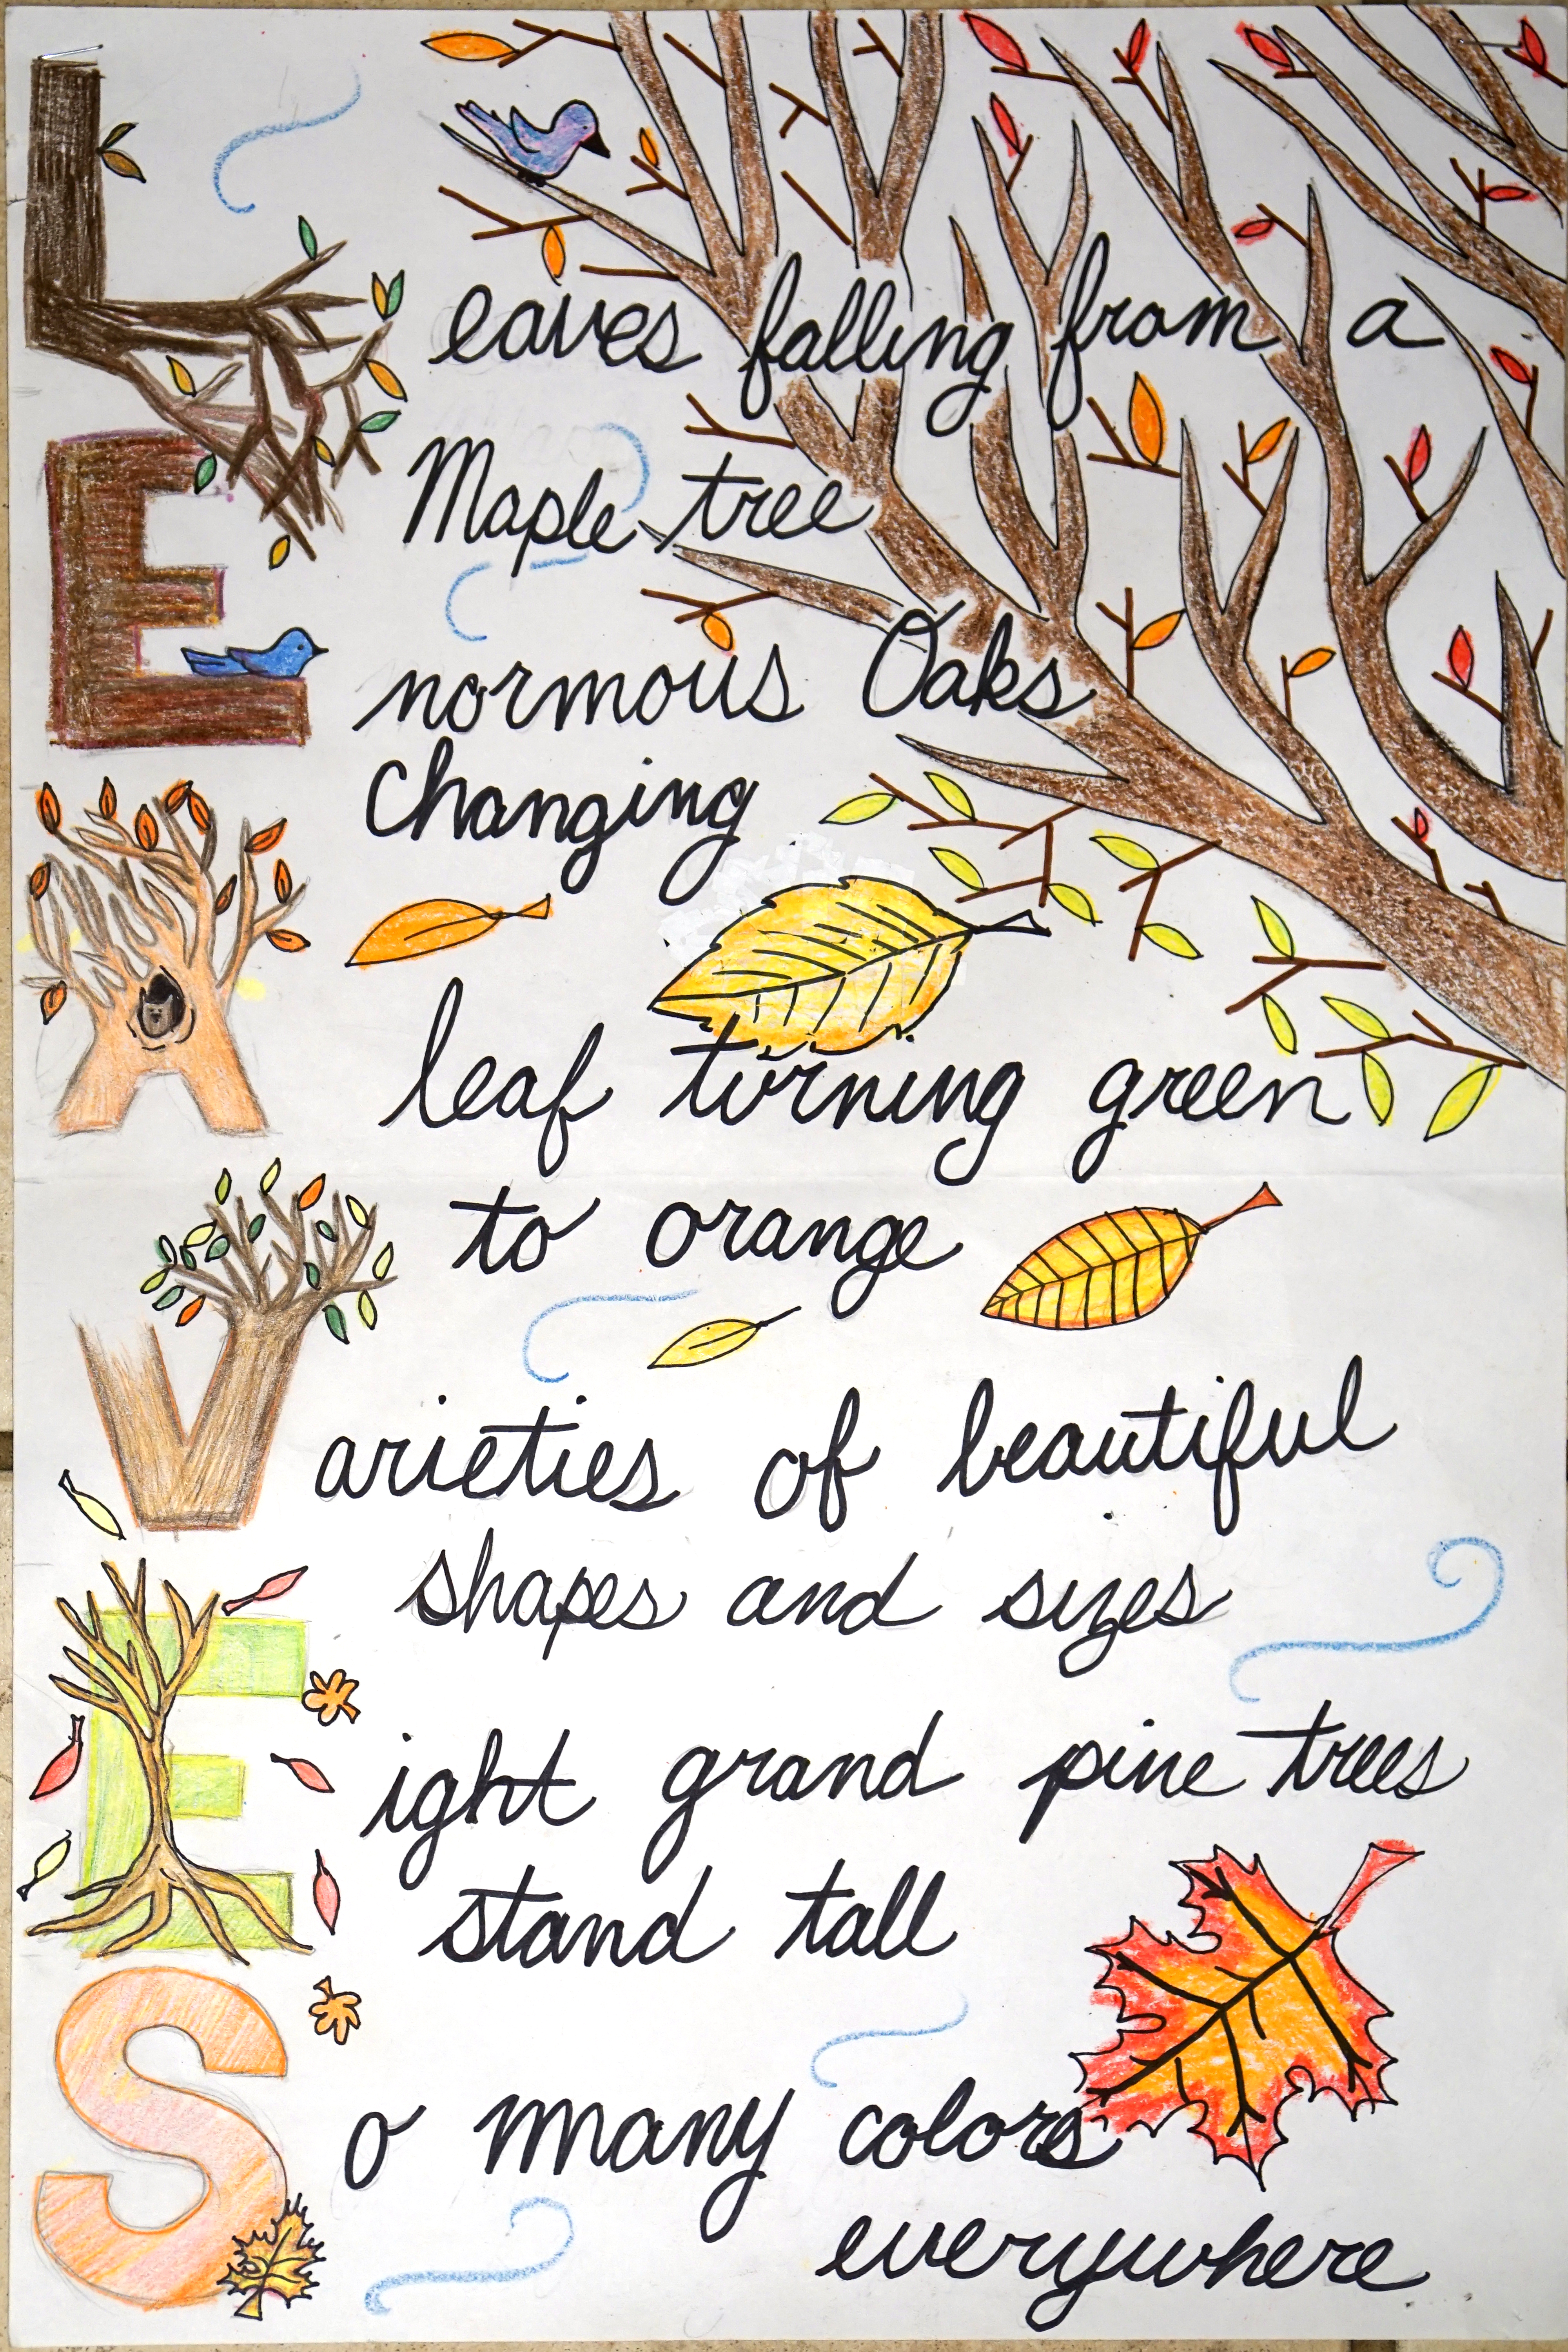 Leaves falling from a
Maple tree
Enormous Oaks
Changing
A leaf turning green
to orange
Varieties of beautiful
shapes and sizes
Eight grand pine trees
stand tall
So many colors
everywhere